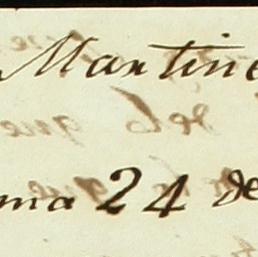 Martine
ma 24 de